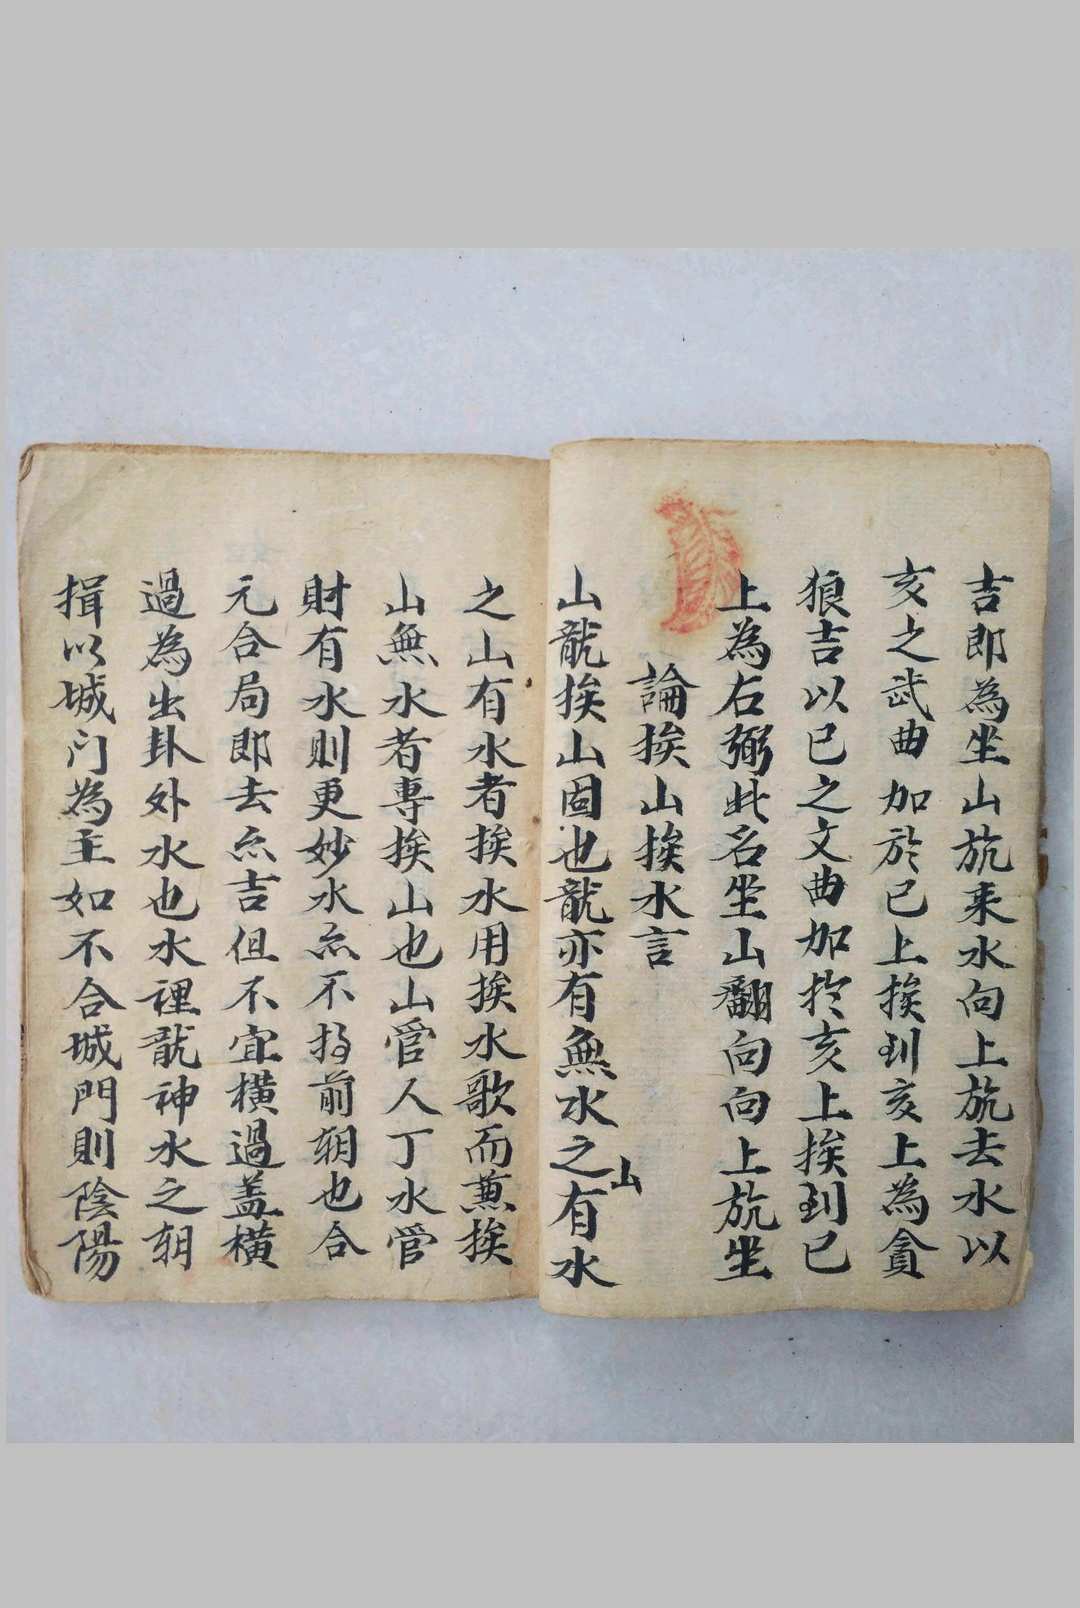 吉郎為坐山旂來水向上旂去水以
亥之武曲加於巳上挨到亥上為貪
狼吉以巳之文曲加於亥上挨到巳
上為右弼此名坐山翻向向上旂坐
山
論挨山挨水言
山龍挨山固也龍亦有無水之有水
之山有水者挨水用挨水歌而兼挨
山無水者專挨山也山管人丁水管
財有水則更妙水亦不拘前朝也合
元合局郎去亦吉但不宜橫過盖橫
過為出卦外水也水裡龍神水之朝
揖以城门為主如不合城門則陰陽